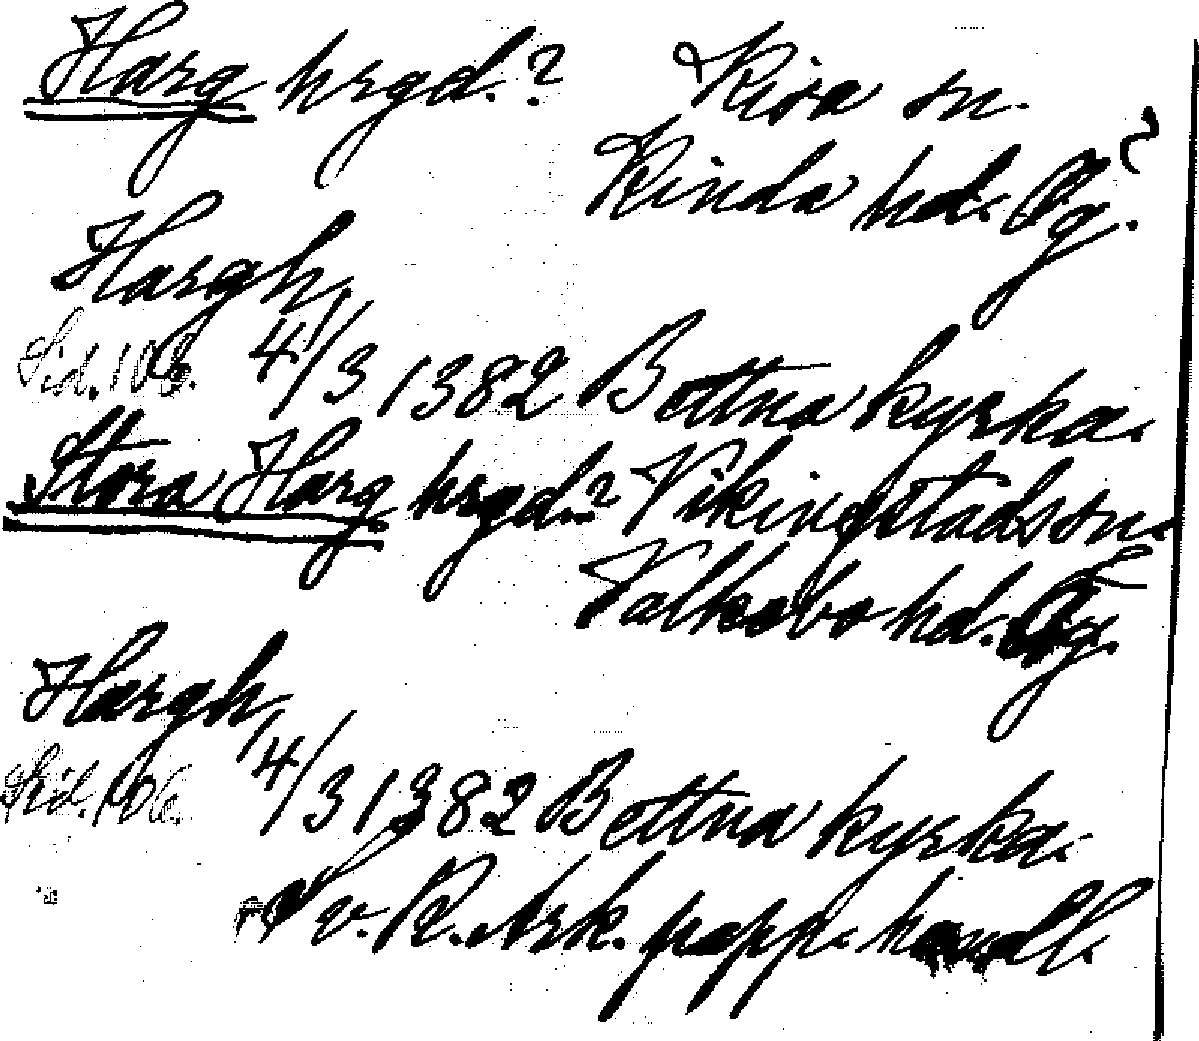 Harg hrgd.? Kisa sn.
Kinda hd. Ög.?
Hargh,
Sid. 106. 4/3 1382 Bettna kyrka.
Stora Harg hrgd.? Vikingstads sn.
Valkebo hd. Ög.
Hargh,
Sid. 106. 4/3 1382 Bettna kyrka.
Sv. R. Ark. papp. handl.